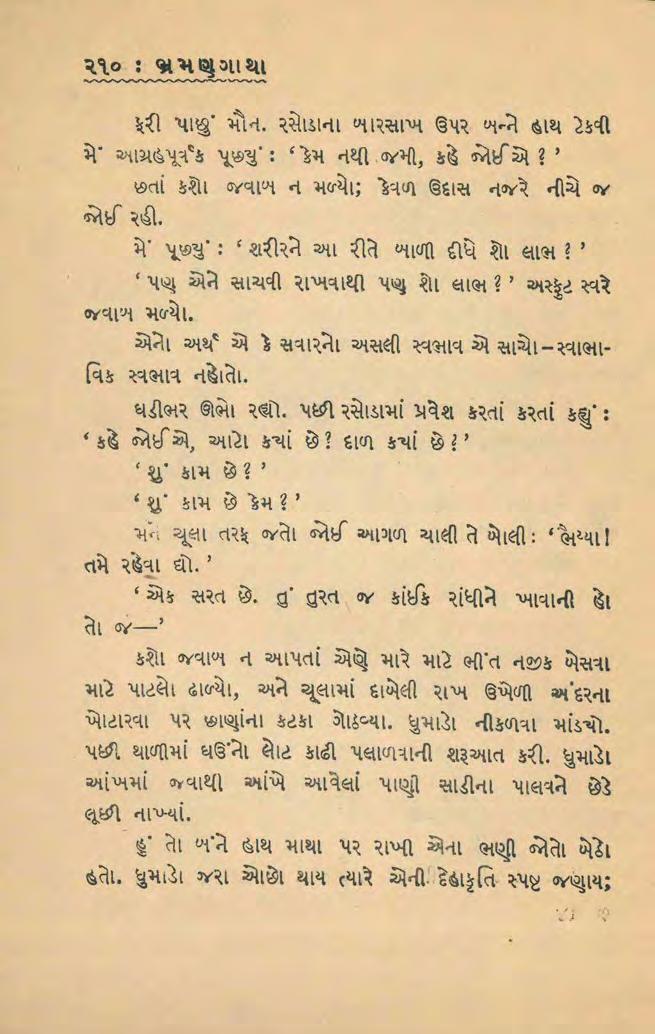 ૨૧૦ : ભ્રમણગાથા
ફરી પાછું મૌન. રસોડાના બારસાખ ઉપર બન્ને હાથ ટેકવી
મેં આગ્રહપૂર્વક પૂછ્યું : ‘ કેમ નથી જમી, કહે જોઈએ ? ’
છતાં કશો જવાબ ન મળ્યો; કેવળ ઉદાસ નજરે નીચે જ
જોઈ રહી.
મેં પૂછ્યું : ‘ શરીરને આ રીતે બાળી દીધે શો લાભ ? ’
‘ પણ એને સાચવી રાખવાથી પણ શો લાભ ? ’ અસ્ફુટ સ્વરે
જવાબ મળ્યો.
એનો અર્થ એ કે સવારનો અસલી સ્વભાવ એ સાચો – સ્વાભા-
વિક સ્વભાવ નહોતો.
ઘડીભર ઊભો રહ્યો. પછી રસોડામાં પ્રવેશ કરતાં કરતાં કહ્યું :
‘ કહે જોઈએ, આટો ક્યાં છે ? દાળ ક્યાં છે ? ’
‘ શું કામ છે ? ’
‘ શું કામ છે કેમ ? ’
મને ચૂલા તરફ જતો જોઈ આગળ ચાલી તે બોલી : ‘ ભૈય્યા !
તમે રહેવા દ્યો. ’
‘ એક સરત છે. તું તુરત જ કાંઈક રાંધીને ખાવાની હો
તો જ—’
કશો જવાબ ન આપતાં એણે મારે માટે ભીંત નજીક બેસવા
માટે પાટલો ઢાળ્યો, અને ચૂલામાં દાબેલી રાખ ઉખેળી અંદરના
ખોટારવા પર છાણાંના કટકા ગોઠવ્યા. ધુમાડો નીકળવા માંડ્યો.
પછી થાળીમાં ઘઉંનો લોટ કાઢી પલાળવાની શરૂઆત કરી. ધુમાડો
આંખમાં જવાથી આંખે આવેલાં પાણી સાડીના પાલવને છેડે
લૂછી નાખ્યાં.
હું તો બંને હાથ માથા પર રાખી એના ભણી જોતો બેઠો
હતો. ધુમાડો જરા ઓછો થાય ત્યારે એની દેહાકૃતિ સ્પષ્ટ જણાય;